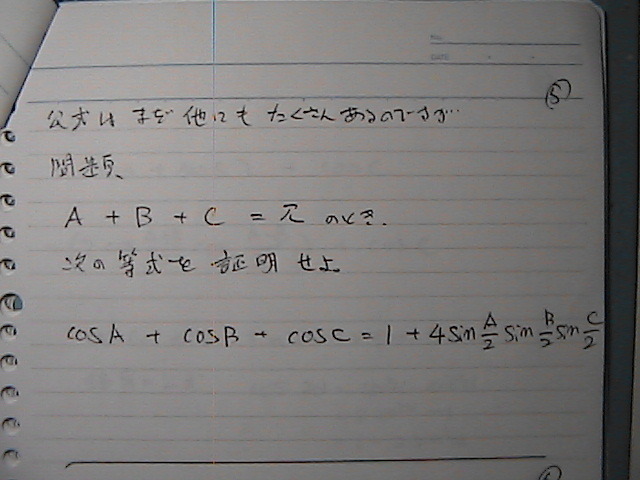 No.
DATE
⑤
公式は まだ 他にも たくさん あるのですが…
問題、
A + B + C = π のとき、
次の等式を 証明せよ
cosA + cosB + cosC = 1 + 4 sin A/2 sin B/2 sin C/2